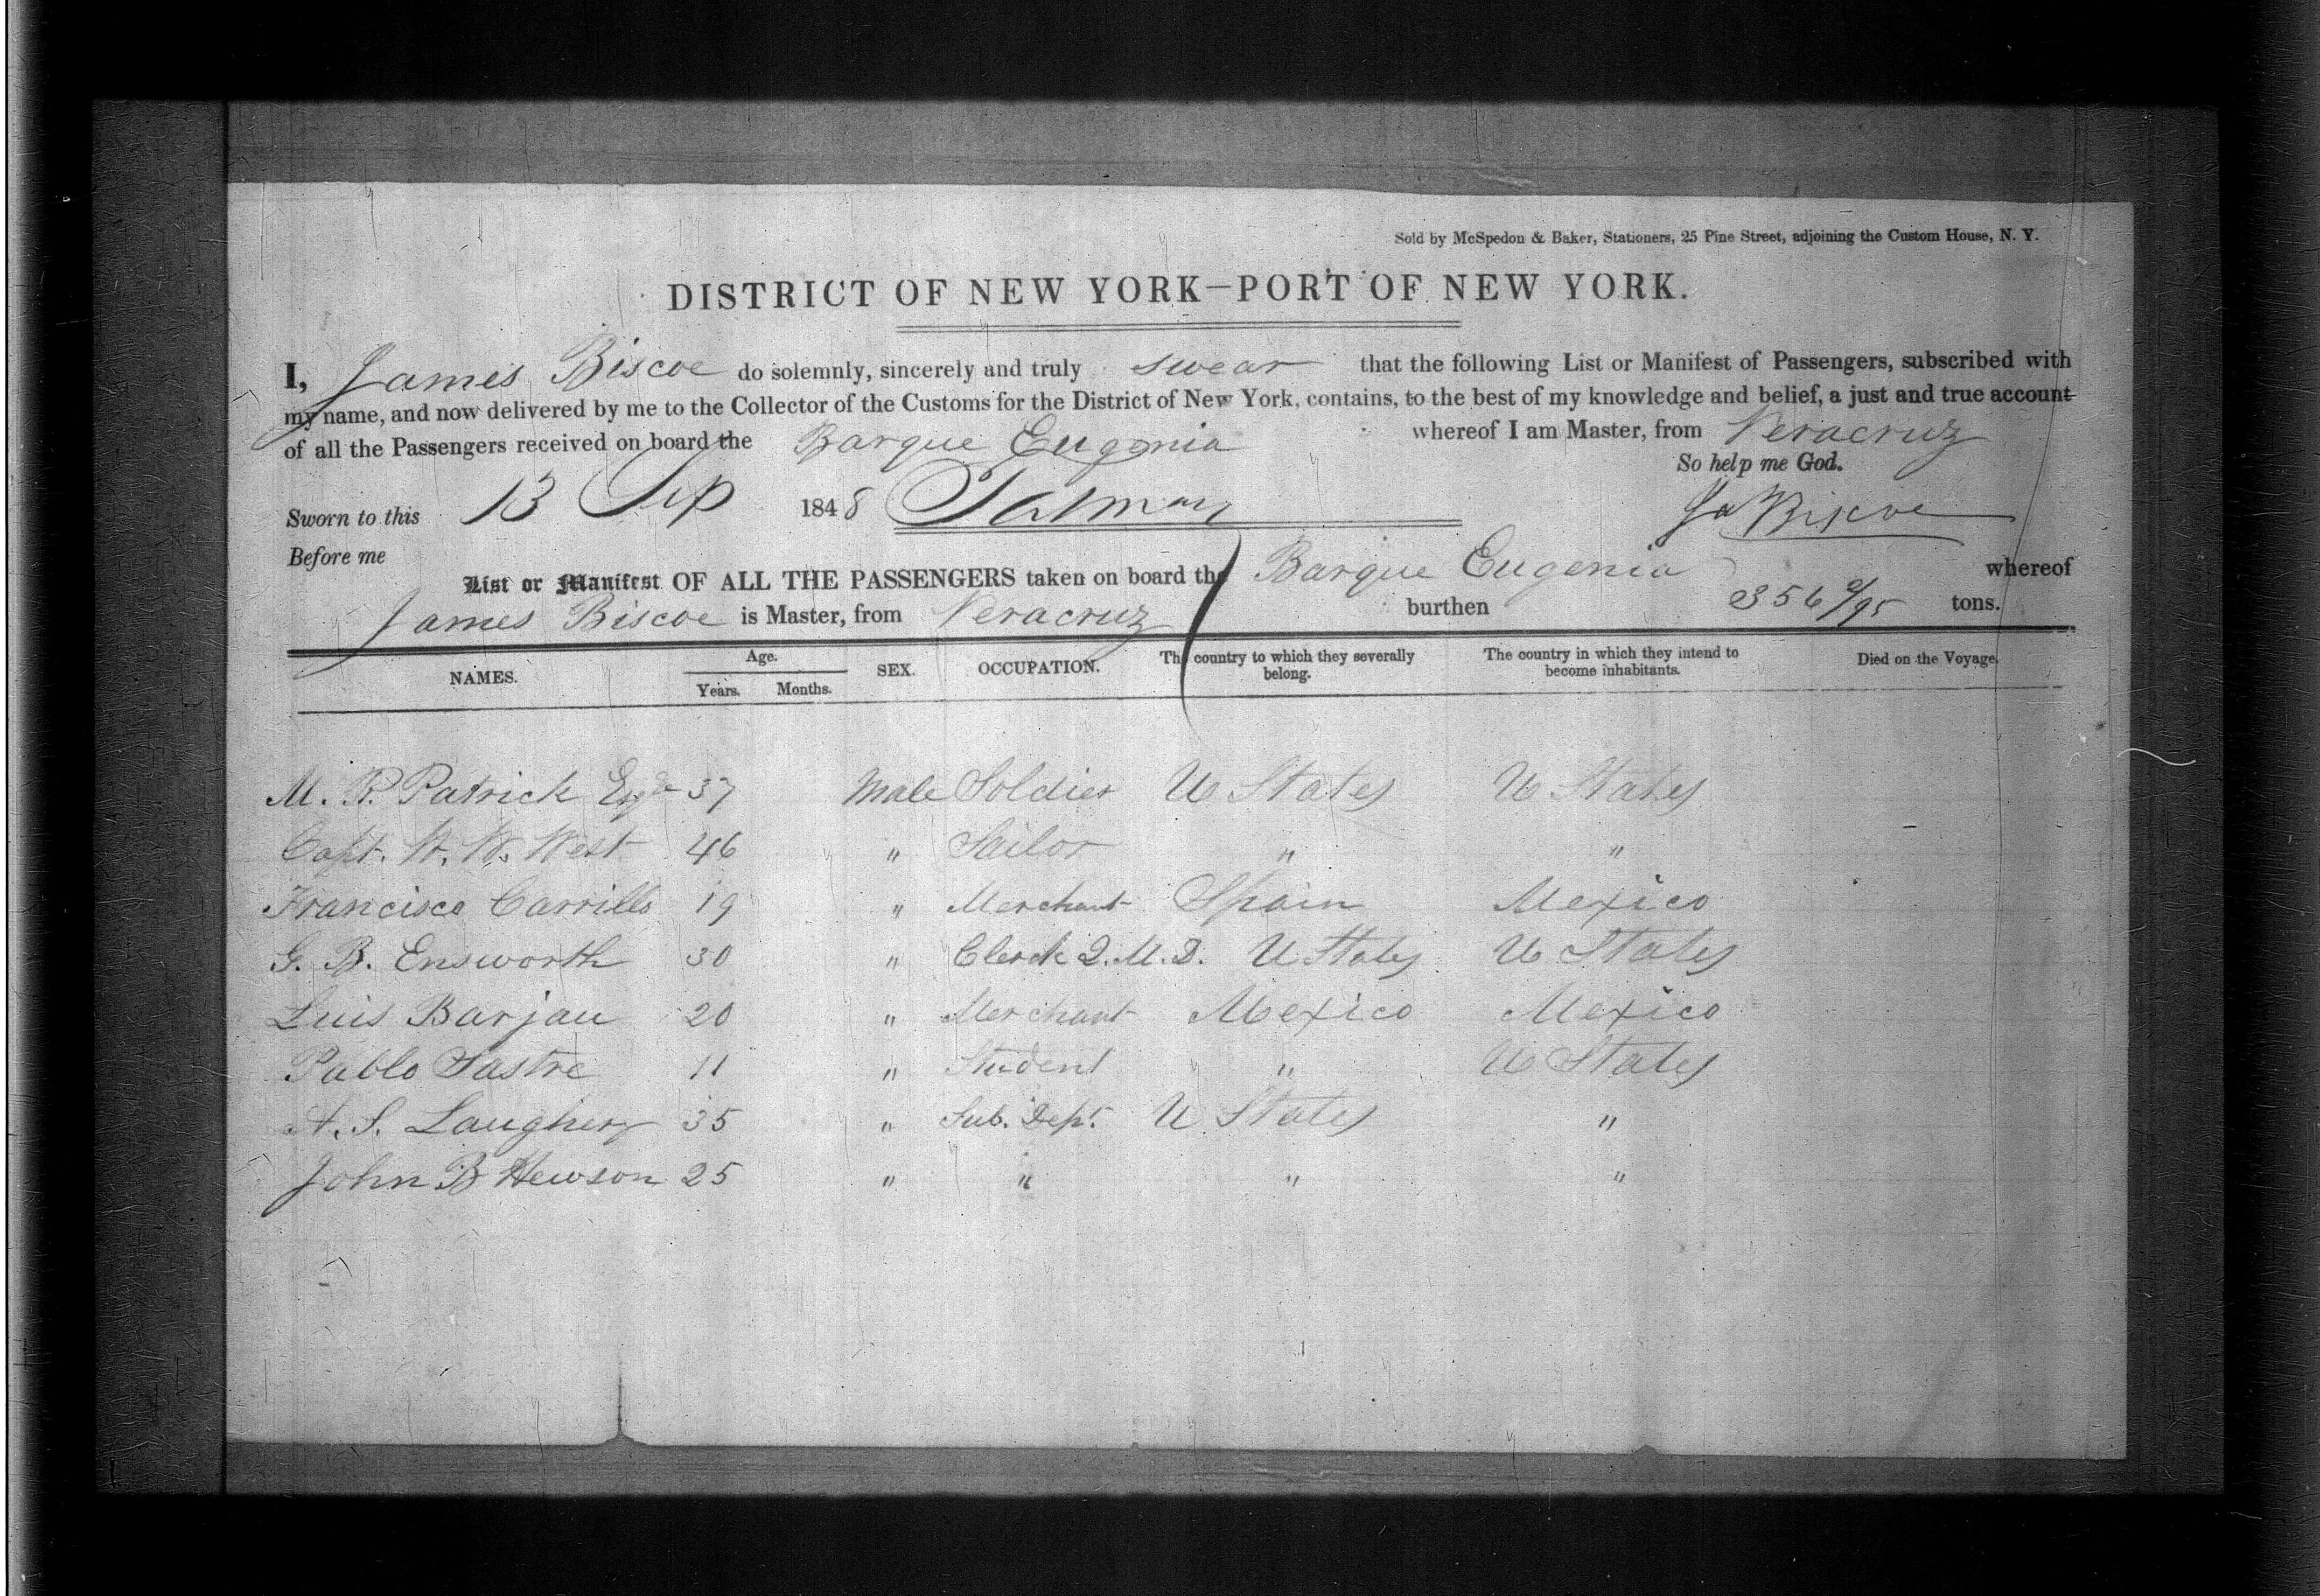 Sold by McSpedon & Baker, Stationers, 25 Pine Street, adjoining the Custom House, N. Y.
DISTRICT OF NEW YORK—PORT OF NEW YORK.
I, James Biscoe do solemnly, sincerely and truly swear that the following List or Manifest of Passengers, subscribed with
my name, and now delivered by me to the Collector of the Customs for the District of New York, contains, to the best of my knowledge and belief, a just and true account
of all the Passengers received on board the Barque Eugenia whereof I am Master, from Veracruz
So help me God.
Sworn to this 13 Sep 1848 Jas Biscoe
Before me
List or Manifest OF ALL THE PASSENGERS taken on board the Barque Eugenia whereof
James Biscoe is Master, from Veracruz burthen 356 2/95 tons.
NAMES. Age. Years. Months. SEX. OCCUPATION. The country to which they severally belong. The country in which they intend to become inhabitants. Died on the Voyage.
M. R. Patrick 37 Male Soldier U States U States
Capt. W. W. West 46 " Sailor " "
Francisco Carrillo 19 " Merchant Spain Mexico
G. B. Ensworth 30 " Clerk Q.M.D. U States U States
Luis Barjau 20 " Merchant Mexico Mexico
Pablo Sastre 11 " Student " U States
A. S. Laughery 35 " Sub. Dept. U States "
John B Hewson 25 " " " "